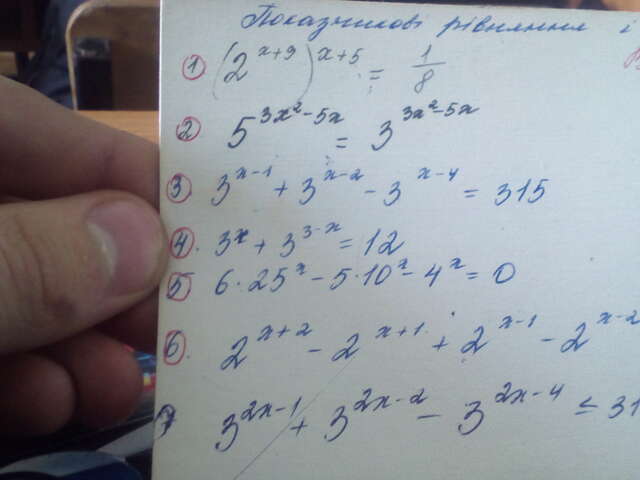 Показникові рівняння і
1 (2^{x+9})^{x+5} = 1/8
2 5^{3x²-5x} = 3^{3x²-5x}
3. 3^{x-1} + 3^{x-2} - 3^{x-4} = 315
4. 3^x + 3^{3-x} = 12
5 6·25^x - 5·10^x - 4^x = 0
6. 2^{x+2} - 2^{x+1} + 2^{x-1} - 2^{x-2}
7 3^{2x-1} + 3^{2x-2} - 3^{2x-4} ≤ 31